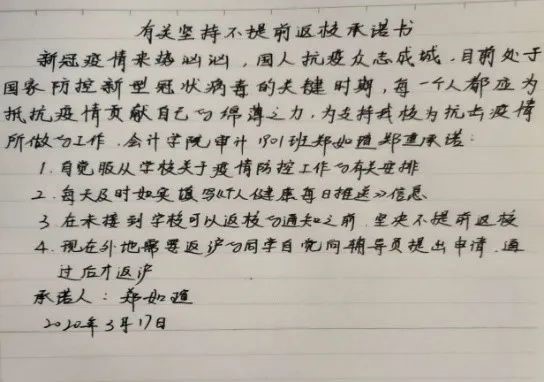 有关坚持不提前返校承诺书
新冠疫情来势汹汹，国人抗疫众志成城，目前处于
国家防控新型冠状病毒的关键时期，每一个人都应为
抵抗疫情贡献自己的绵薄之力，为支持我校为抗击疫情
所做的工作，会计学院审计1901班郑如瑄郑重承诺：
1. 自觉服从学校关于疫情防控工作的有关安排
2. 每天及时如实填写《个人健康每日推送》信息
3. 在未接到学校可以返校的通知之前，坚决不提前返校
4. 现在外地需要返沪的同学自觉向辅导员提出申请，通
过后才返沪
承诺人：郑如瑄
2020年3月17日